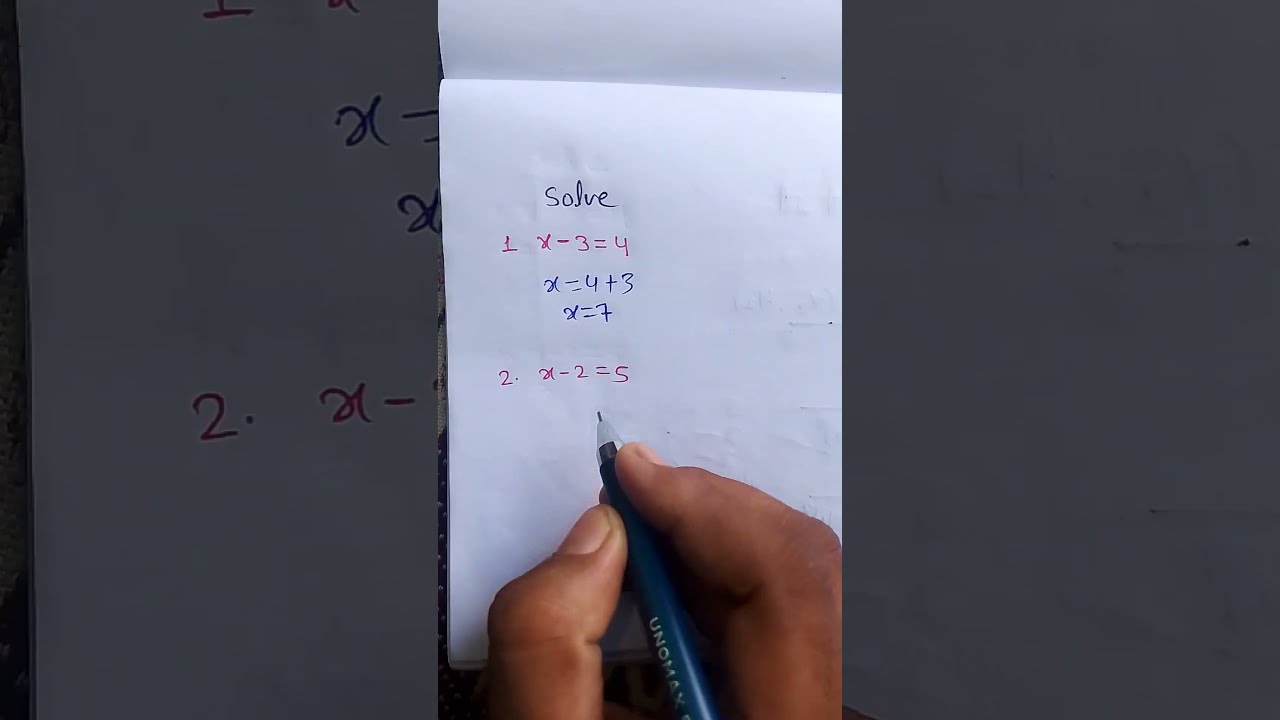 Solve
1 x-3=4
x=4+3
x=7
2. x-2=5
UNOMAX